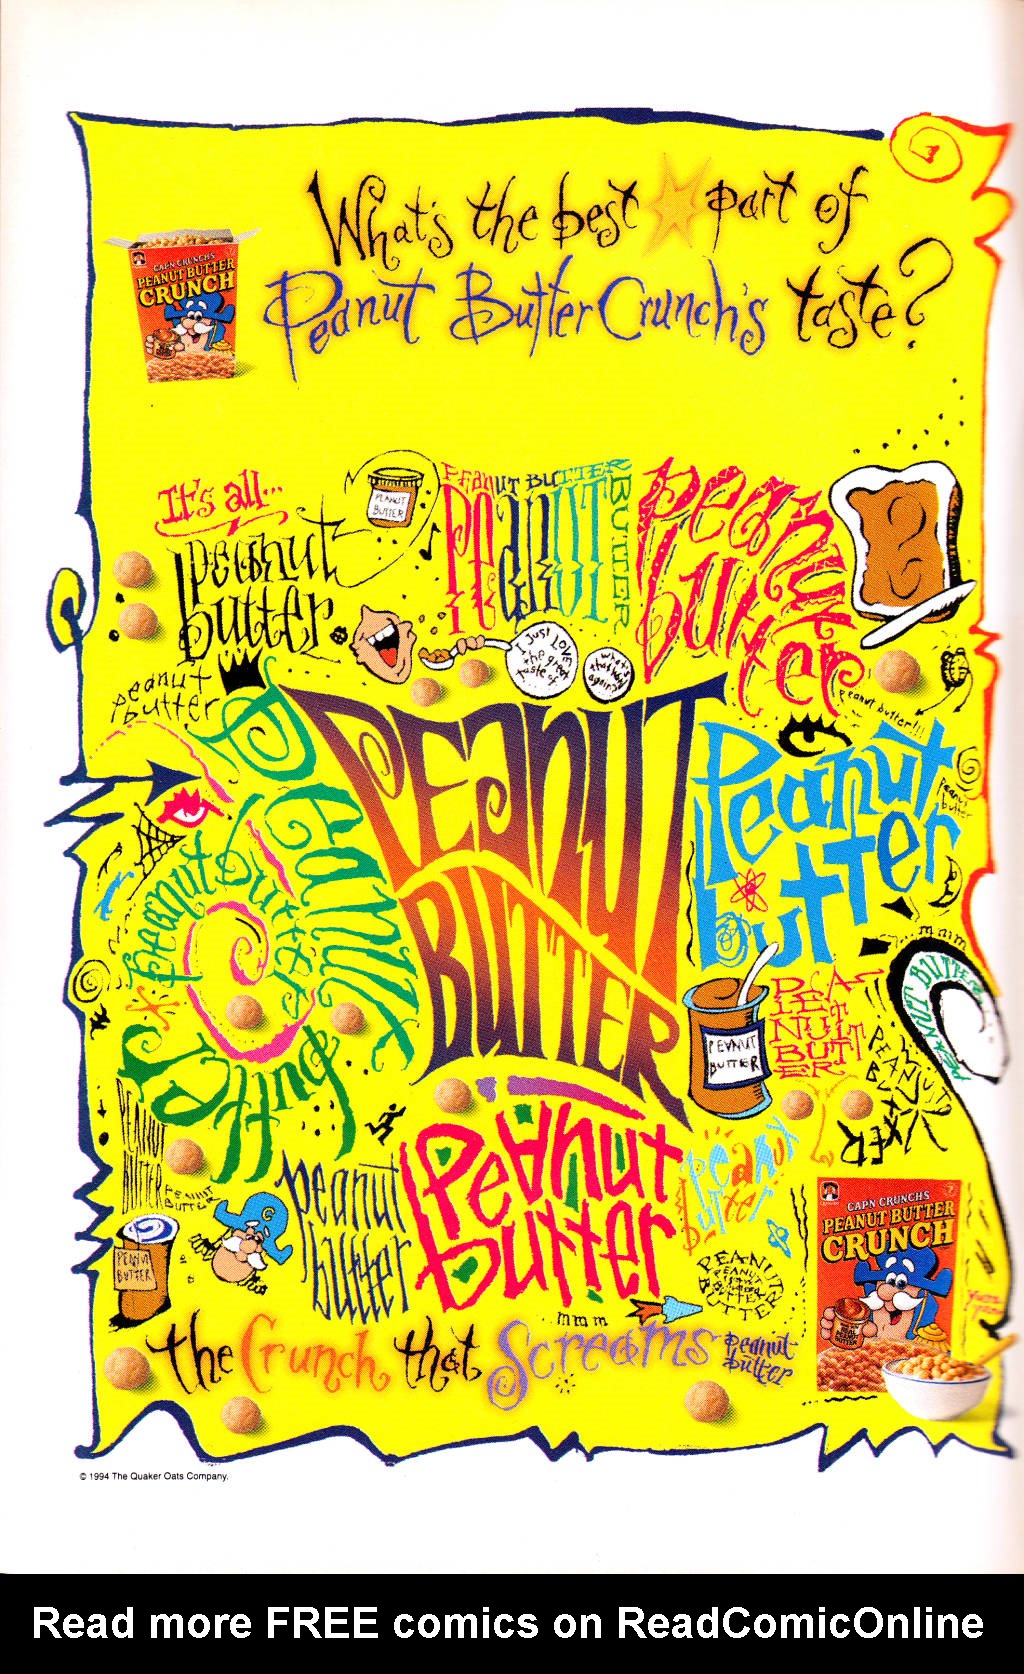 What's the best part of
Peanut Butter Crunch's taste?
CAP'N CRUNCH'S
PEANUT BUTTER
CRUNCH
It's all...
peanut
butter
PEANUT
BUTTER
PEANUT BUTTER
PEANUT
BUTTER
peanut
butter
I just LOVE
the great
taste of
what's
that word
again?
peanut
butter
peanut butter!!!
PEANUT
BUTTER
Peanut
butter
peanut
butter
Peanut
butter
peanut butter
mmm
PEANUT BUTTER
PEANUT
BUTTER
PEA-
NUT
BUTT
ER
PEANUT
BUTTER
PEANUT
BUTTER
peanut
butter
peanut
butter
peanut
butter
PEANUT
BUTTER
PEANUT
BUTTER
PEANUT
BUTTER
CAP'N CRUNCH'S
PEANUT BUTTER
CRUNCH
yum
yum
mmm
the Crunch that Screams peanut
butter
© 1994 The Quaker Oats Company.
Read more FREE comics on ReadComicOnline